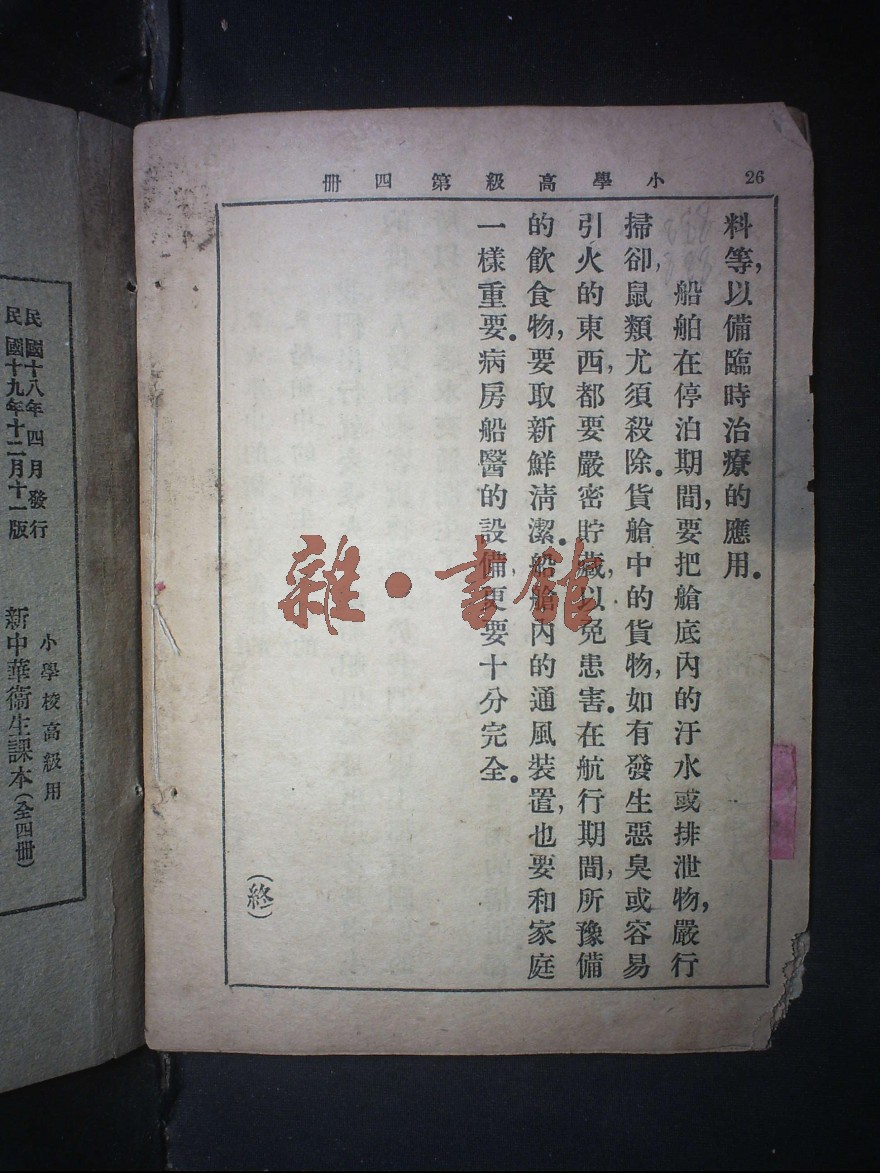 小學高級第四冊
26
料等,以備臨時治療的應用.
船舶在停泊期間,要把艙底內的汙水或排泄物,嚴行
掃卻,鼠類尤須殺除.貨艙中的貨物,如有發生惡臭或容易
引火的東西,都要嚴密貯藏,以免患害.在航行期間,所豫備
的飲食物,要取新鮮清潔.船艙內的通風裝置,也要和家庭
一樣重要.病房船醫的設備,更要十分完全.
(終)
雜·書館
小學校高級用
新中華衞生課本(全四冊)
民國十八年四月發行
民國十九年十二月十一版